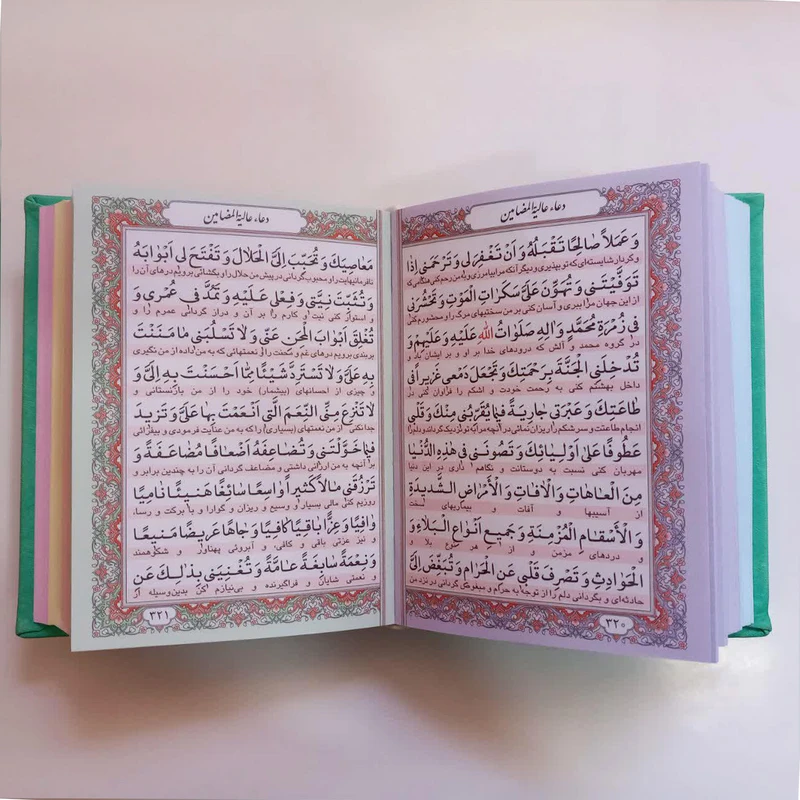 دعاء عالیة المضامین
وَ عَمَلاً صَالِحًا تَقْبَلُهُ وَ اَنْ تَغْفِرَ لي وَ تَرْحَمَني اِذٰا
و کردار شایسته‌ای که تو بپذیری و دیگر آنکه مرا بیامرزی و به من رحم کنی هنگامی که
تَوَفَّيْتَني وَ تُهَوِّنَ عَلَيَّ سَكَرٰاتِ الْمَوْتِ وَ تَحْشُرَني
از این جهان مرا ببری و آسان کنی بر من سختیهای مرگ را و محشورم کنی
في زُمْرَةِ مُحَمَّدٍ وَ اٰلِهِ صَلَوٰاتُ اللهِ عَلَيْهِ وَ عَلَيْهِمْ وَ
در گروه محمد و آلش که درودهای خدا بر او و بر ایشان باد و
تُدْخِلَنِي الْجَنَّةَ بِرَحْمَتِكَ وَ تَجْعَلَ دَمْعي غَزيراً في
داخل بهشتم کنی به رحمت خودت و اشکم را فراوان کنی در
طٰاعَتِكَ وَ عَبْرَتي جٰارِيَةً فيمٰا يُقَرِّبُني مِنْكَ وَ قَلْبي
انجام طاعتت و سرشکم را ریزان نمائی در آنچه مرا به تو نزدیک گرداند و دلم را
عَطُوفًا عَلىٰ اَوْلِيٰائِكَ وَ تَصُونَني في هٰذِهِ الدُّنْيٰا
مهربان کنی نسبت به دوستانت و نگاهم داری در این دنیا
مِنَ الْعٰاهٰاتِ وَ الْاٰفٰاتِ وَ الْاَمْرٰاضِ الشَّديدَةِ
از آسیبها و آفات و بیماریهای سخت
وَ الْاَسْقٰامِ الْمُزْمِنَةِ وَ جَميعِ اَنْوٰاعِ الْبَلٰاءِ وَ
و دردهای مزمن و از هر نوع بلا و
الْحَوٰادِثِ وَ تَصْرِفَ قَلْبي عَنِ الْحَرٰامِ وَ تُبَغِّضَ اِلَيَّ
حادثه‌ای و بگردانی دلم را از توجه به حرام و مبغوض گردانی در نزد من
۳۲۰
دعاء عالیة المضامین
مَعٰاصيكَ وَ تُحَبِّبَ اِلَيَّ الْحَلٰالَ وَ تَفْتَحَ لي اَبْوٰابَهُ
نافرمانیهایت را و محبوب گردانی در پیش من حلال را و بگشائی برویم درهای آن را
وَ تُثَبِّتَ نِيَّتي وَ فِعْلي عَلَيْهِ وَ تَمُدَّ في عُمْري وَ
و استوار کنی نیت و کارم را بر آن و دراز گردانی عمرم را و
تُغْلِقَ اَبْوٰابَ الْمِحَنِ عَنّي وَ لٰا تَسْلُبَني مٰا مَنَنْتَ
ببندی برویم درهای غم و محنت را و نعمتهائی که به من داده از من نگیری
بِهِ عَلَيَّ وَ لٰا تَسْتَرِدَّ شَيْئًا مِمّٰا اَحْسَنْتَ بِهِ اِلَيَّ وَ
و چیزی از احسانهای (بیشمار) خود را از من بازنستانی و
لٰا تَنْزِعَ مِنِّي النِّعَمَ الَّتي اَنْعَمْتَ بِهٰا عَلَيَّ وَ تَزيدَ
جدا نکنی از من نعمتهای (بسیاری) را که به من عنایت فرمودی و بیفزائی
فيمٰا خَوَّلْتَني وَ تُضٰاعِفَهُ اَضْعٰافًا مُضٰاعَفَةً وَ
بر آنچه به من ارزانی داشتی و مضاعف گردانی آن را به چندین برابر و
تَرْزُقَني مٰالاً كَثيراً وٰاسِعًا سٰائِغًا هَنيئًا نٰامِيًا
روزیم کنی مالی بسیار و وسیع و ریزان و گوارا و با برکت و رسا،
وٰافِيًا وَ عِزًّا بٰاقِيًا كٰافِيًا وَ جٰاهًا عَريضًا مَنيعًا
و نیز عزتی باقی و کافی، و آبروئی پهناور و شکوهمند
وَ نِعْمَةً سٰابِغَةً عٰامَّةً وَ تُغْنِيَني بِذٰلِكَ عَنِ
و نعمتی شایان و فراگیرنده و بی‌نیازم کن بدین‌وسیله از
۳۲۱